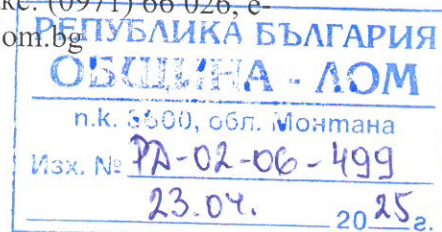 кс: (0971) 66 026, е-
om.bg
РЕПУБЛИКА БЪЛГАРИЯ
ОБЩИНА - ЛОМ
п.к. 3600, обл. Монтана
Изх. № РД-02-06-499
23.04. 2025г.